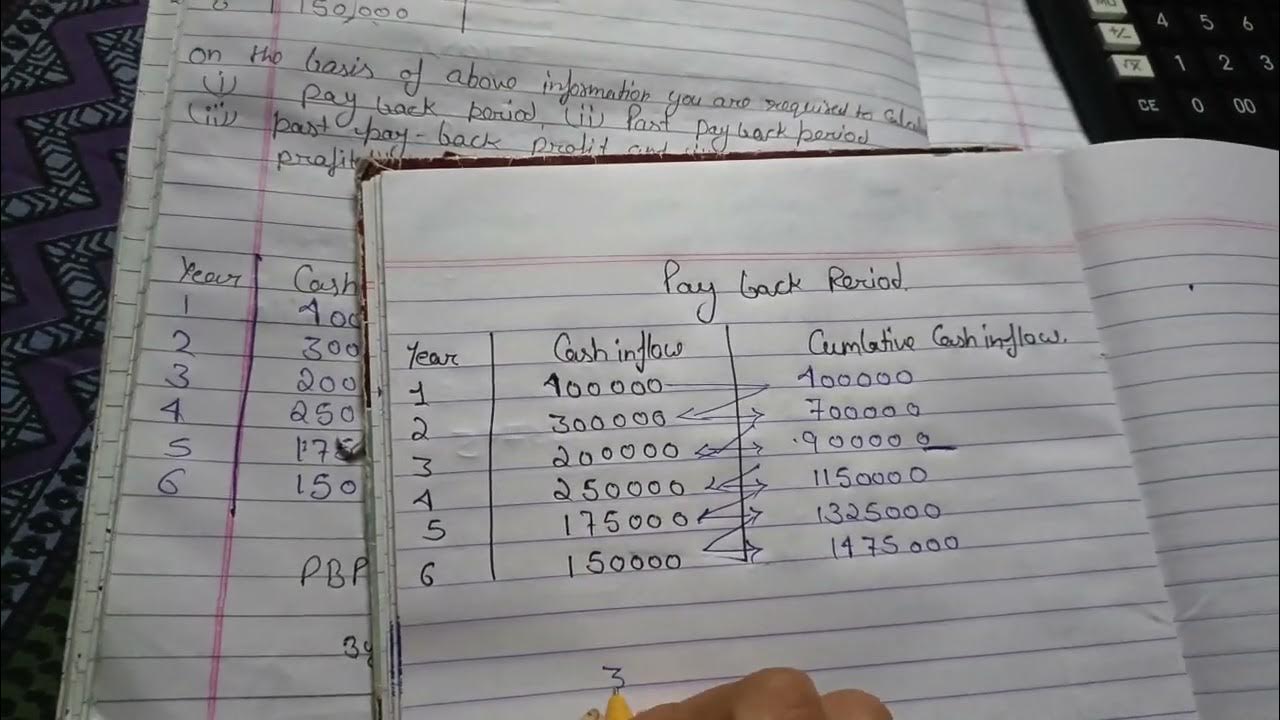 6 | 150,000
on the basis of above information you are required to
(i) Pay back period (ii) Past pay back period
(iii) past pay-back profit and
profit
4 5 6
+/- 1 2 3
√x
CE 0 00
Year Cash
1 400
2 300
3 200
4 250
5 175
6 150
PBP
Pay back Period.
Year Cash inflow Cumlative Cash inflow.
1 400000 400000
2 300000 700000
3 200000 900000
4 250000 1150000
5 175000 1325000
6 150000 1475000
3